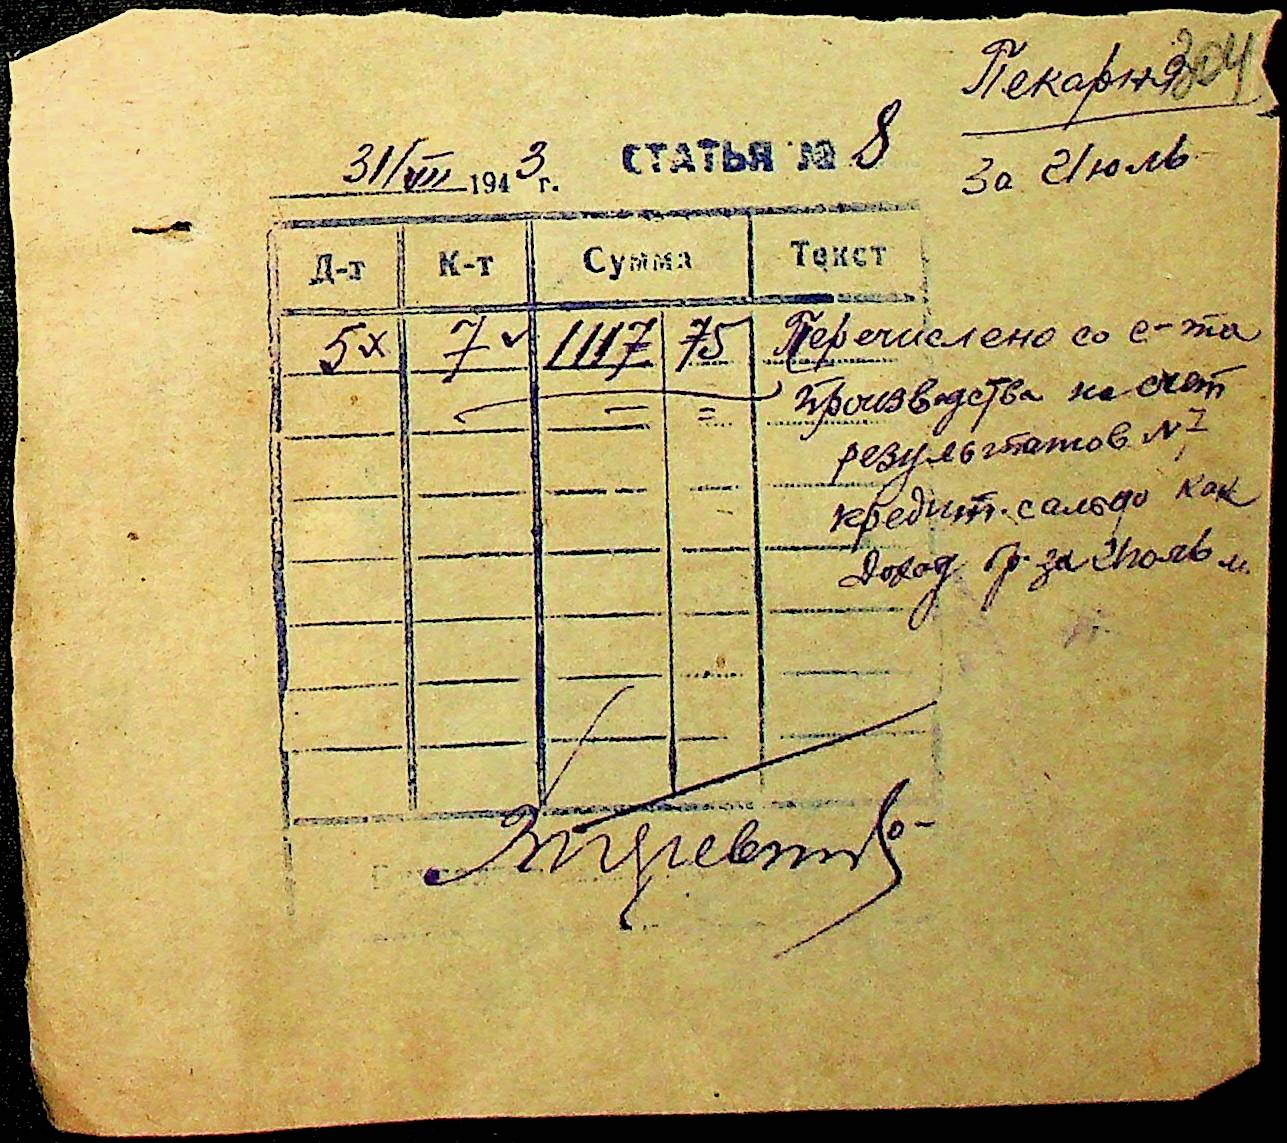 204
Пекарня
За Июль
31/VII 1943 г. СТАТЬЯ № 8
Д-т К-т Сумма Текст
5 7 1117 75 Перечислено со с-та
производства на счет
результатов № 7
кредит. сальдо как
доход пр. за Июль м.